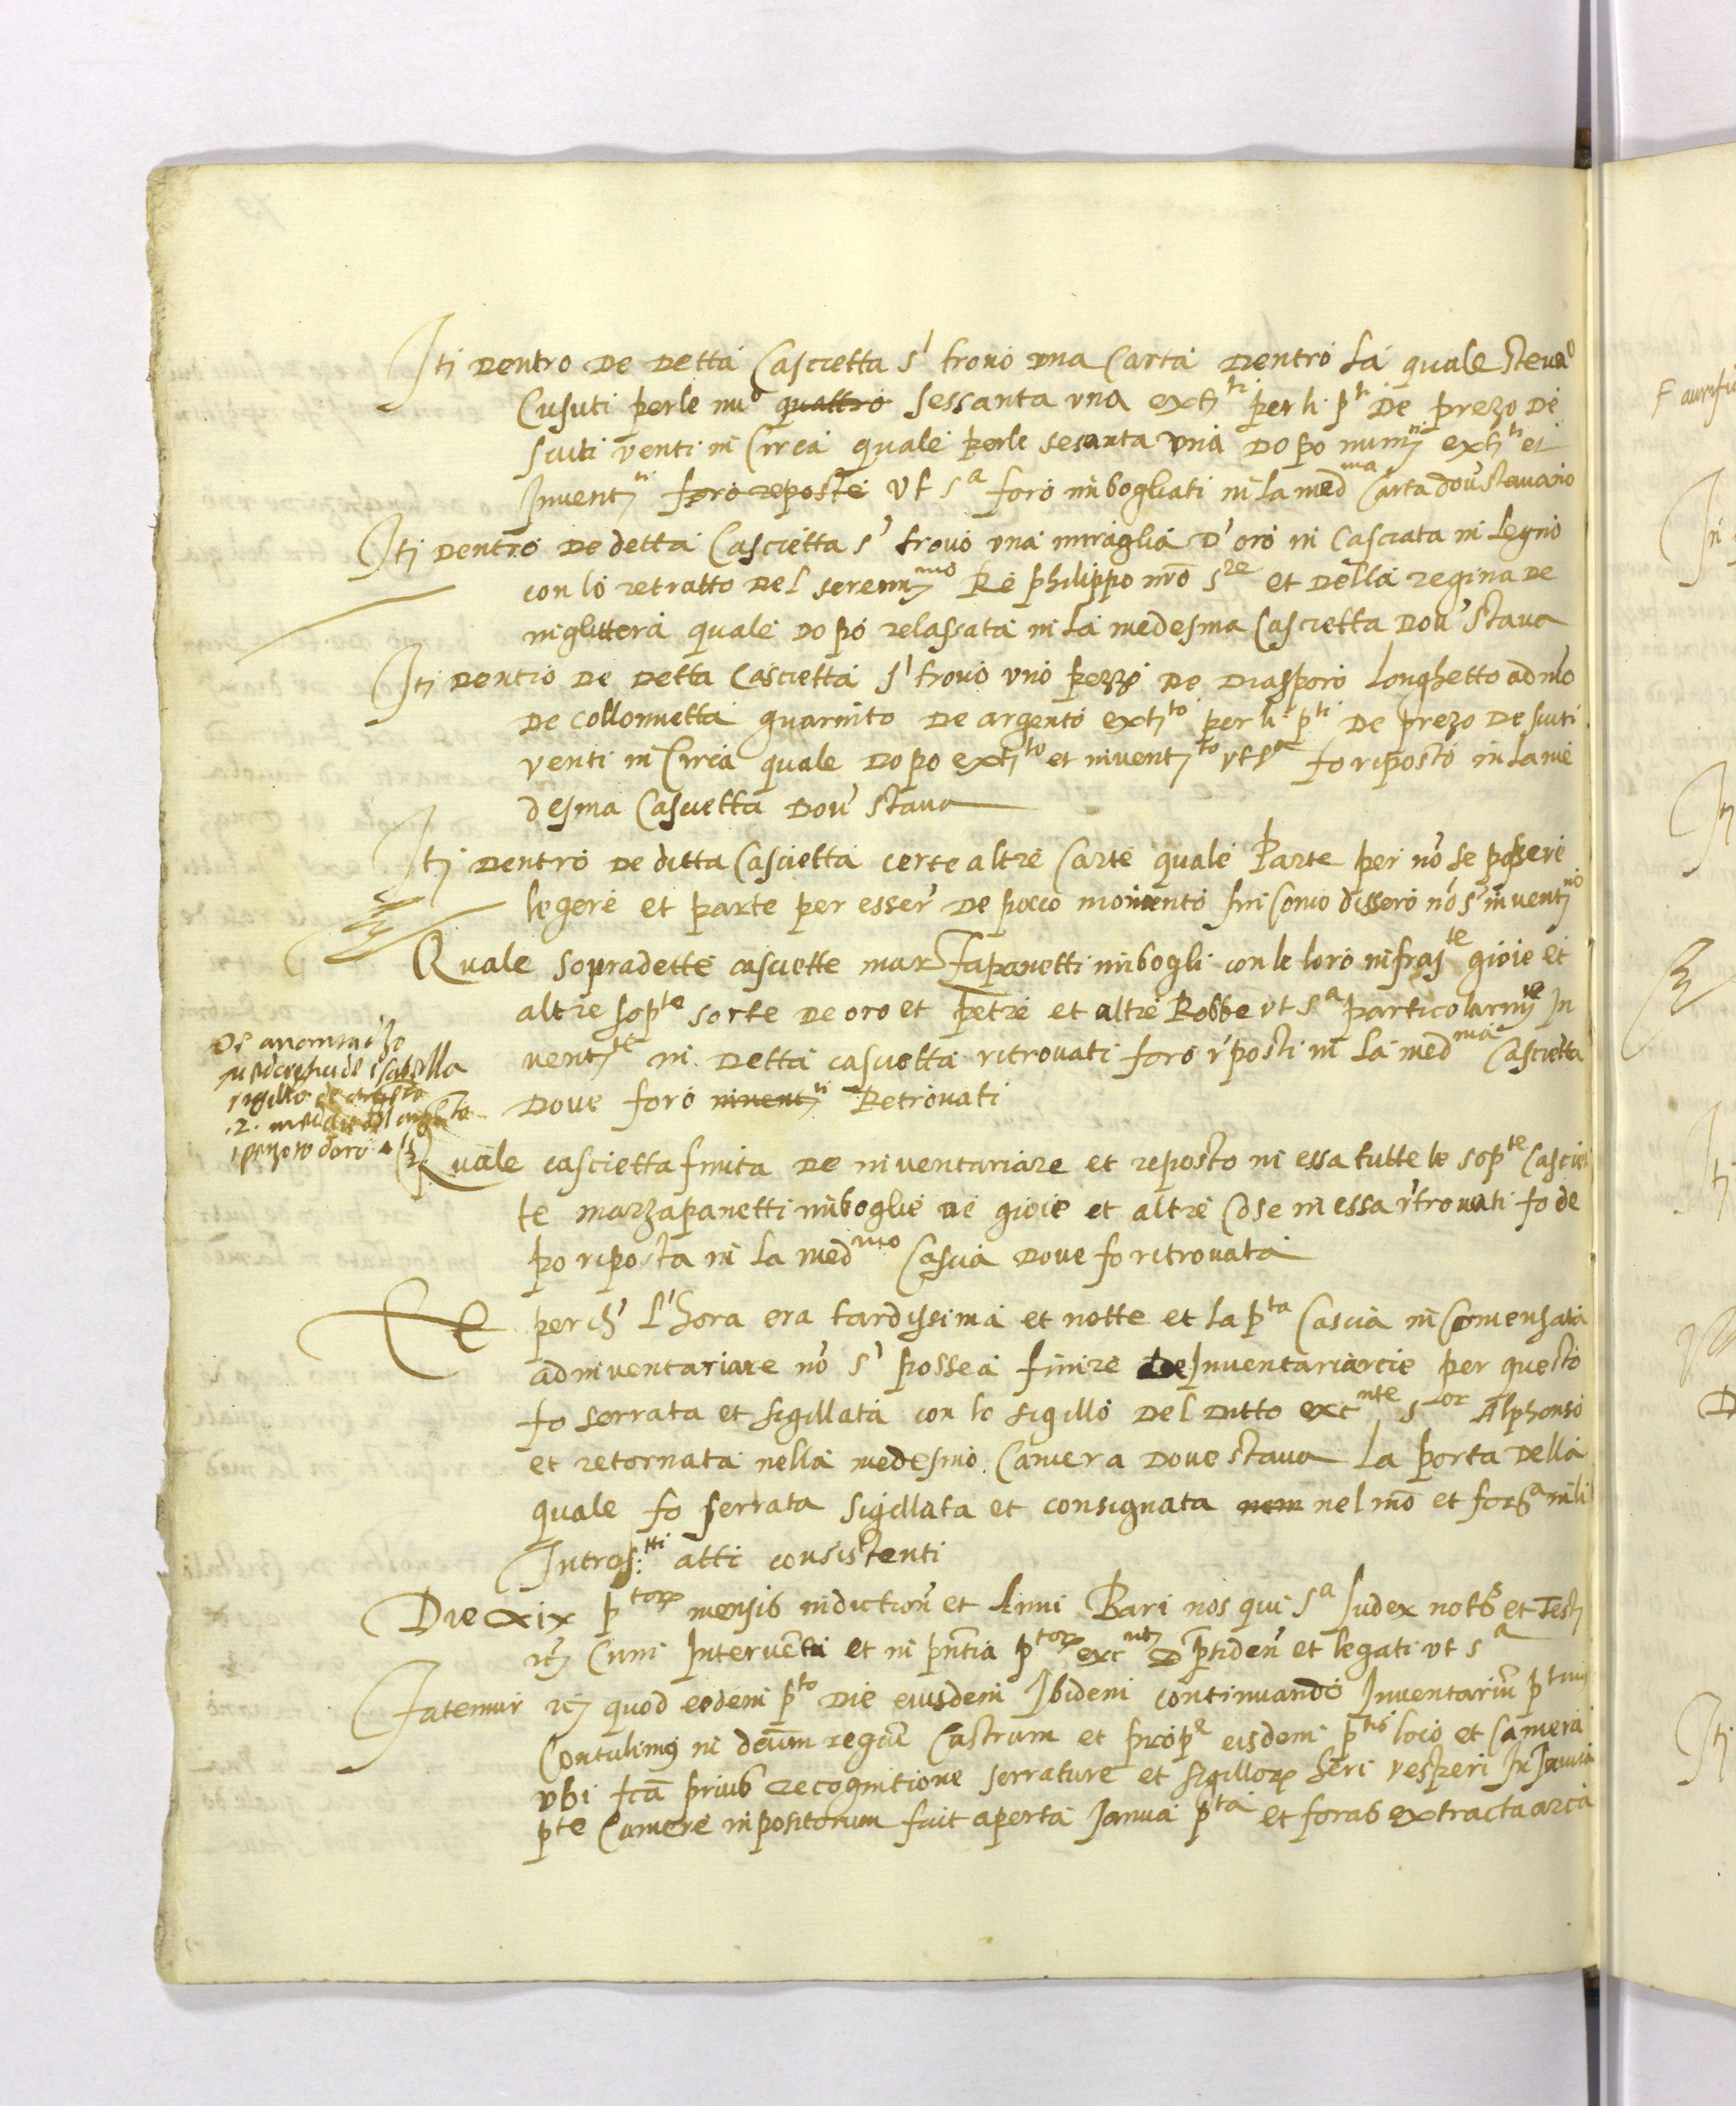 Itj dentro de detta Cascietta s' trovò una Carta dentro la quale steva°
Cusuti perle nu° quattro sessanta una extj^ti per li p^ti de prezo de
scuti venti in Circa quale perle sesanta una dopo numj^ti extj^ti et
Inventj^ti foro reposte ut s^a foro imbogliati in la med^ma Carta dov' stavano
Itj dentro de detta Cascietta s' trovò una miraglia d'oro in Casciata in legno
con lo retratto del serenj^mo Re philippo nrõ s^re et della regina de
inglittera quale dopo relassata in la medesma Cascietta dov' stava
Itj dentro de detta Cascietta s' trovò uno pezzo de diasporo longhetto ad mõ
de collonnetta guarnito de argento extj^to per li p^ti de prezo de scuti
venti in Circa quale dopo extj^to et inventj^to ut s^a fo riposto in la me
desma Cascietta dov' stava
Itj dentro de ditta Cascietta certe altre Carte quale Parte per nõ se possere
legere et parte per esser' de pocco momento sin Como dissero nõ s' inventj^no
Quale sopradette casciette marzapanetti imbogli con le loro infraj^te gioie et
altre sop^te sorte de oro et petre et altre Robbe ut s^a particolarmj^te In
ventj^te in detta cascietta ritrovati foro r'posti in la med^ma Cascietta
dove foro inventj^ti Retrovati
Quale cascietta finita de inventariare et reposto in essa tutte le sop^te Casciet
te marzapanetti imboglie de gioie et altre Cose in essa r'trovati fo de
po riposta in la med^mo Cascia dove fo ritrovata
Et perch' l'hora era tardissima et notte et la p^ta Cascia in Comensata
ad inventariare nõ s' possea finire de Inventariarcie per questo
fo serrata et sigillata con lo sigillo del ditto exc^nte s^or Alphonso
et retornata nella medesmo Camera dove stava la porta della
quale fo serrata sigillata et consignata nem nel mõ et for^a in li
Intros:^tti atti consistenti
Die xix p^torum mensis indiction' et Anni Bari nos qui s^a Judex not^s et Testj
Cum interventu et in pñtia p^torum exc^ntj D p̃siden' et legati ut s^a
Fatemur quod eodem p^to die eiusdem Ibidem continuando Inventariũ p^tum
Contulimus in dictum regiũ Castrum et prop^e eisdem p^tis locio et Camera
ubi fcã prius recognitione serrature et sigillorum heri vesperi In Janua
p^te Camere inpositorum fuit aperta Janua p^ta et foras extracta arca